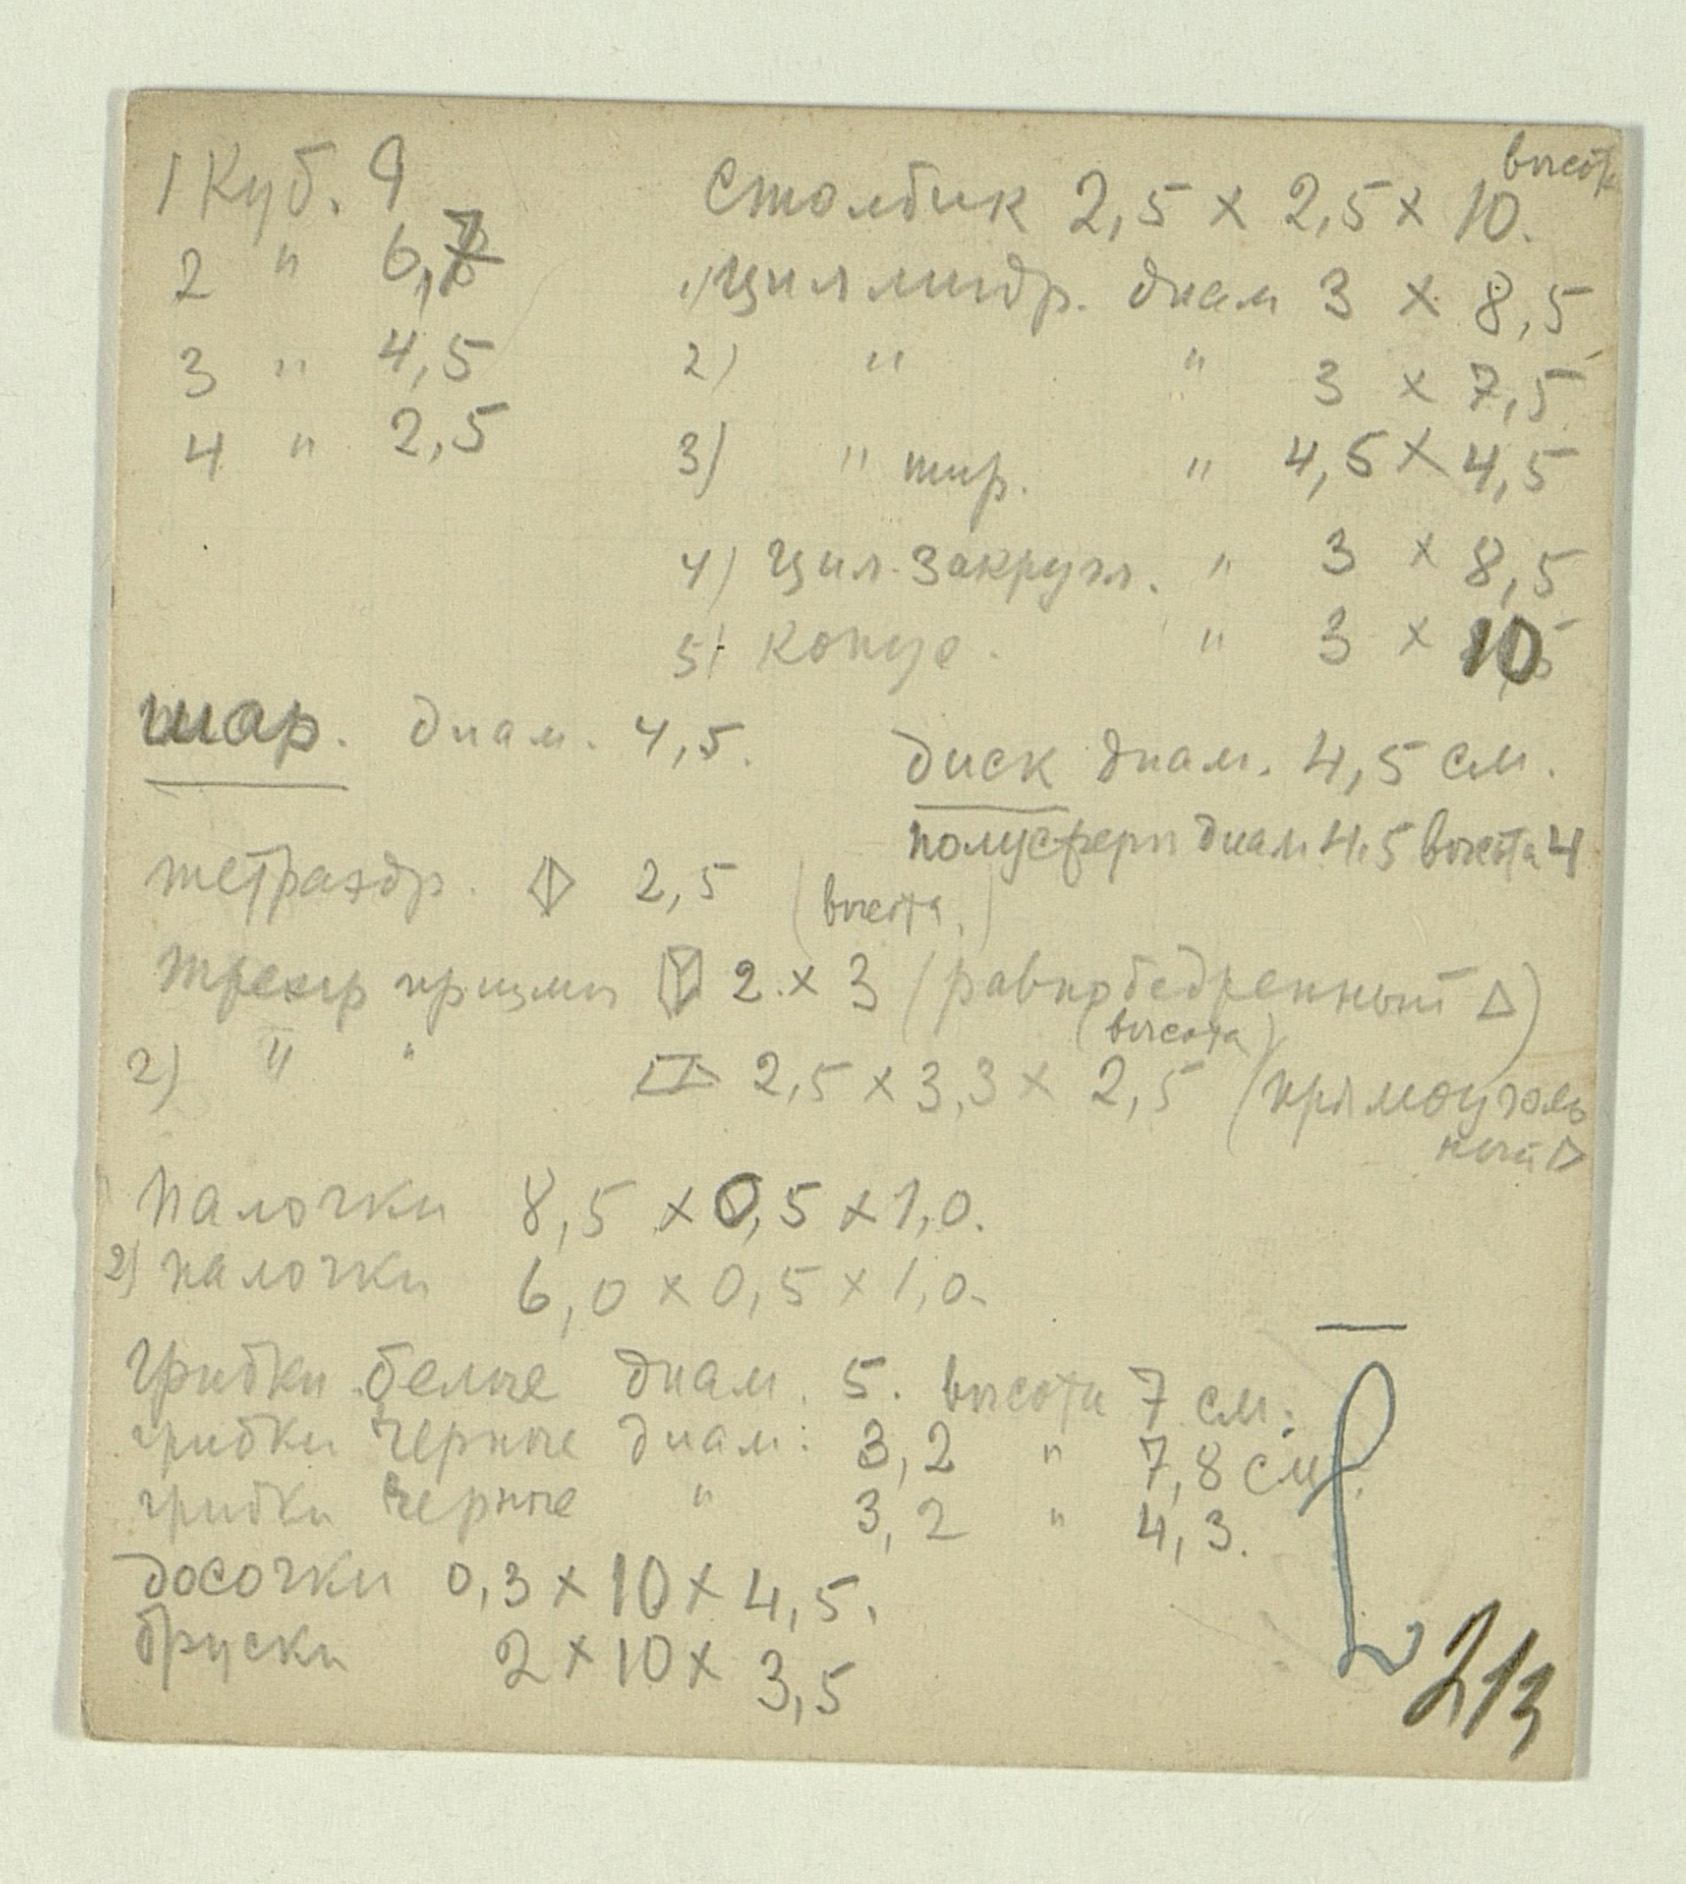 1 Куб. 9
2 " 6,7
3 " 4,5
4 " 2,5
Столбик 2,5 x 2,5 x 10. высота
1) Циллиндр. диам 3 x 8,5
2) " " 3 x 7,5
3) " шир. " 4,5 x 4,5
4) Цил. Закругл. " 3 x 8,5
5) Конус. " 3 x 10
шар. диам. 4,5.
диск диам. 4,5 см.
полусферы диам 4.5 высота 4
тетраэдр. 2,5 (высота)
трехгр призмы 2 x 3 (равнобедренный △)
2) " " 2,5 x 3,3 x 2,5 (высота) (прямоуголь
ный △
палочки 8,5 x 0,5 x 1,0.
2) палочки 6,0 x 0,5 x 1,0.
грибки белые диам. 5. высота 7 см.
грибки черные диам. 3,2 " 7,8 см.
грибки черные " 3,2 " 4,3.
досочки 0,3 x 10 x 4,5.
бруски 2 x 10 x 3,5
213